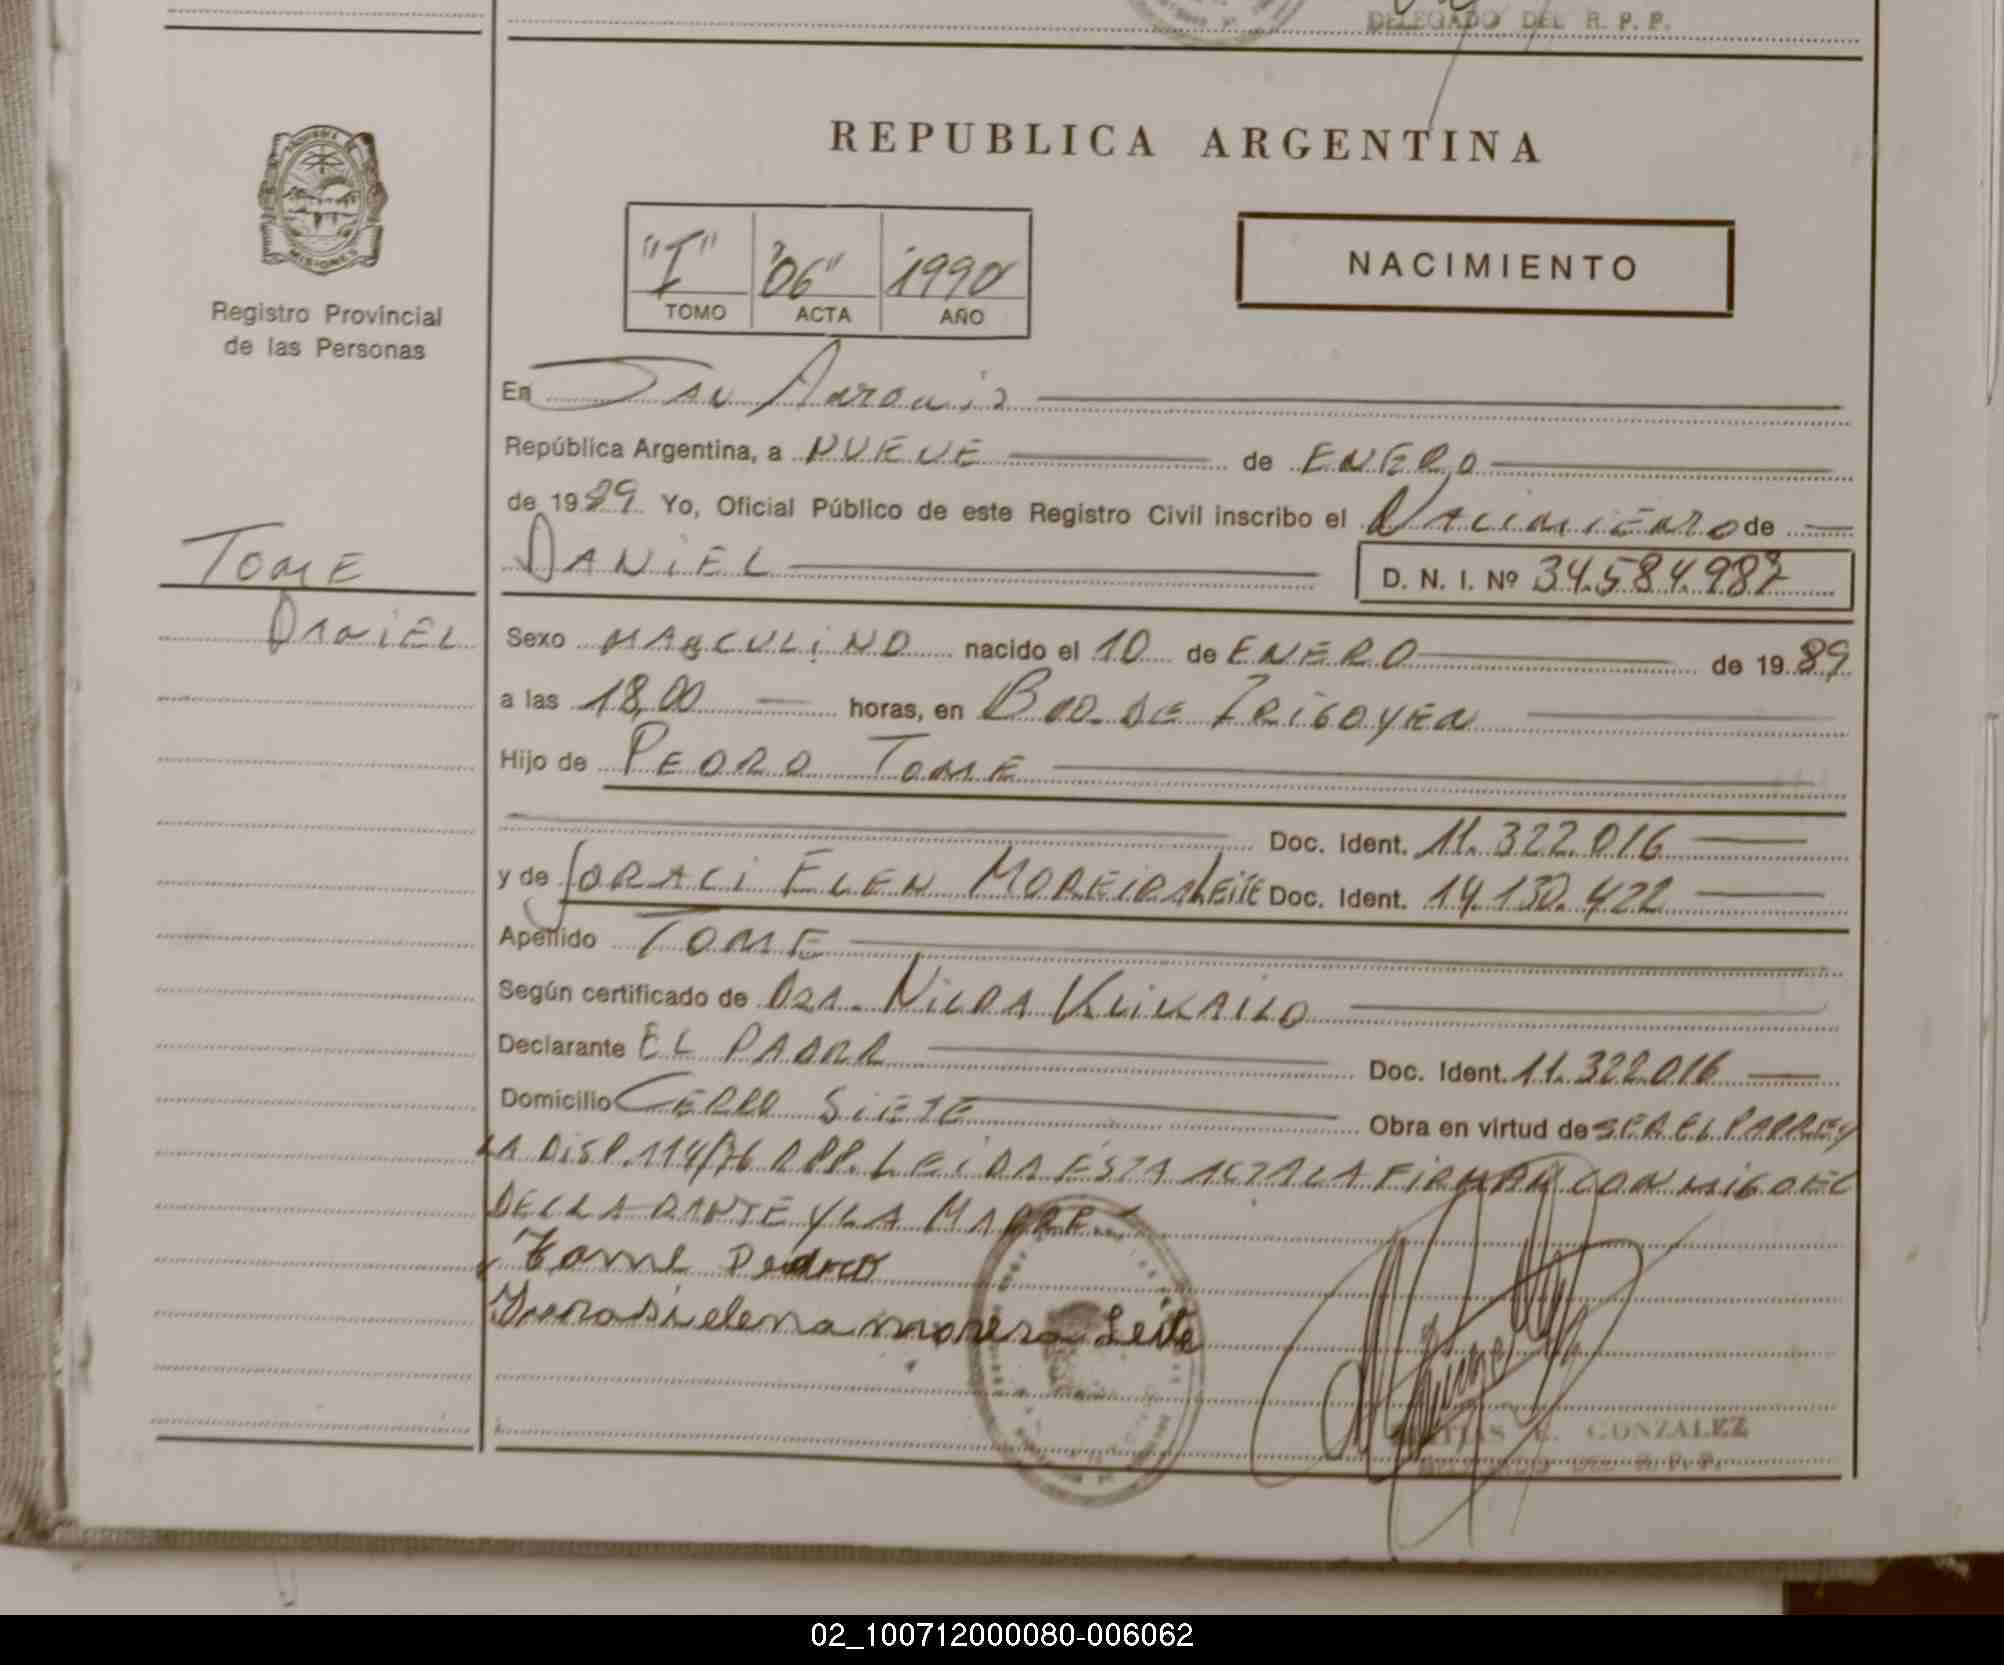 DELEGADO DEL R. P. P.
REPUBLICA ARGENTINA
MISIONES
Registro Provincial
de las Personas
"I" "06" 1990
TOMO ACTA AÑO
NACIMIENTO
En San Antonio
República Argentina, a NUEVE de ENERO
de 1989 Yo, Oficial Público de este Registro Civil inscribo el Nacimiento de
TOME
DANIEL
DANIEL D. N. I. Nº 34.584.987
Sexo MASCULINO nacido el 10 de ENERO de 1989
a las 18,00 horas, en BDO. DE IRIGOYEN
Hijo de PEDRO TOME
Doc. Ident. 11.322.016
y de JORACI ELEN MOREIRA LEITE Doc. Ident. 14.130.422
Apellido TOME
Según certificado de DRA. NILDA
Declarante EL PADRE Doc. Ident. 11.322.016
Domicilio CERRO SIETE Obra en virtud de SER EL PADRE Y
LA DISP. 114/76 RPP. LEIDA ESTA ACTA LA FIRMAN CONMIGO EL
DECLARANTE Y LA MADRE
Tome Pedro
elena morera Leite
C. GONZALEZ
DELEGADO DEL R. P. P.
02_100712000080-006062